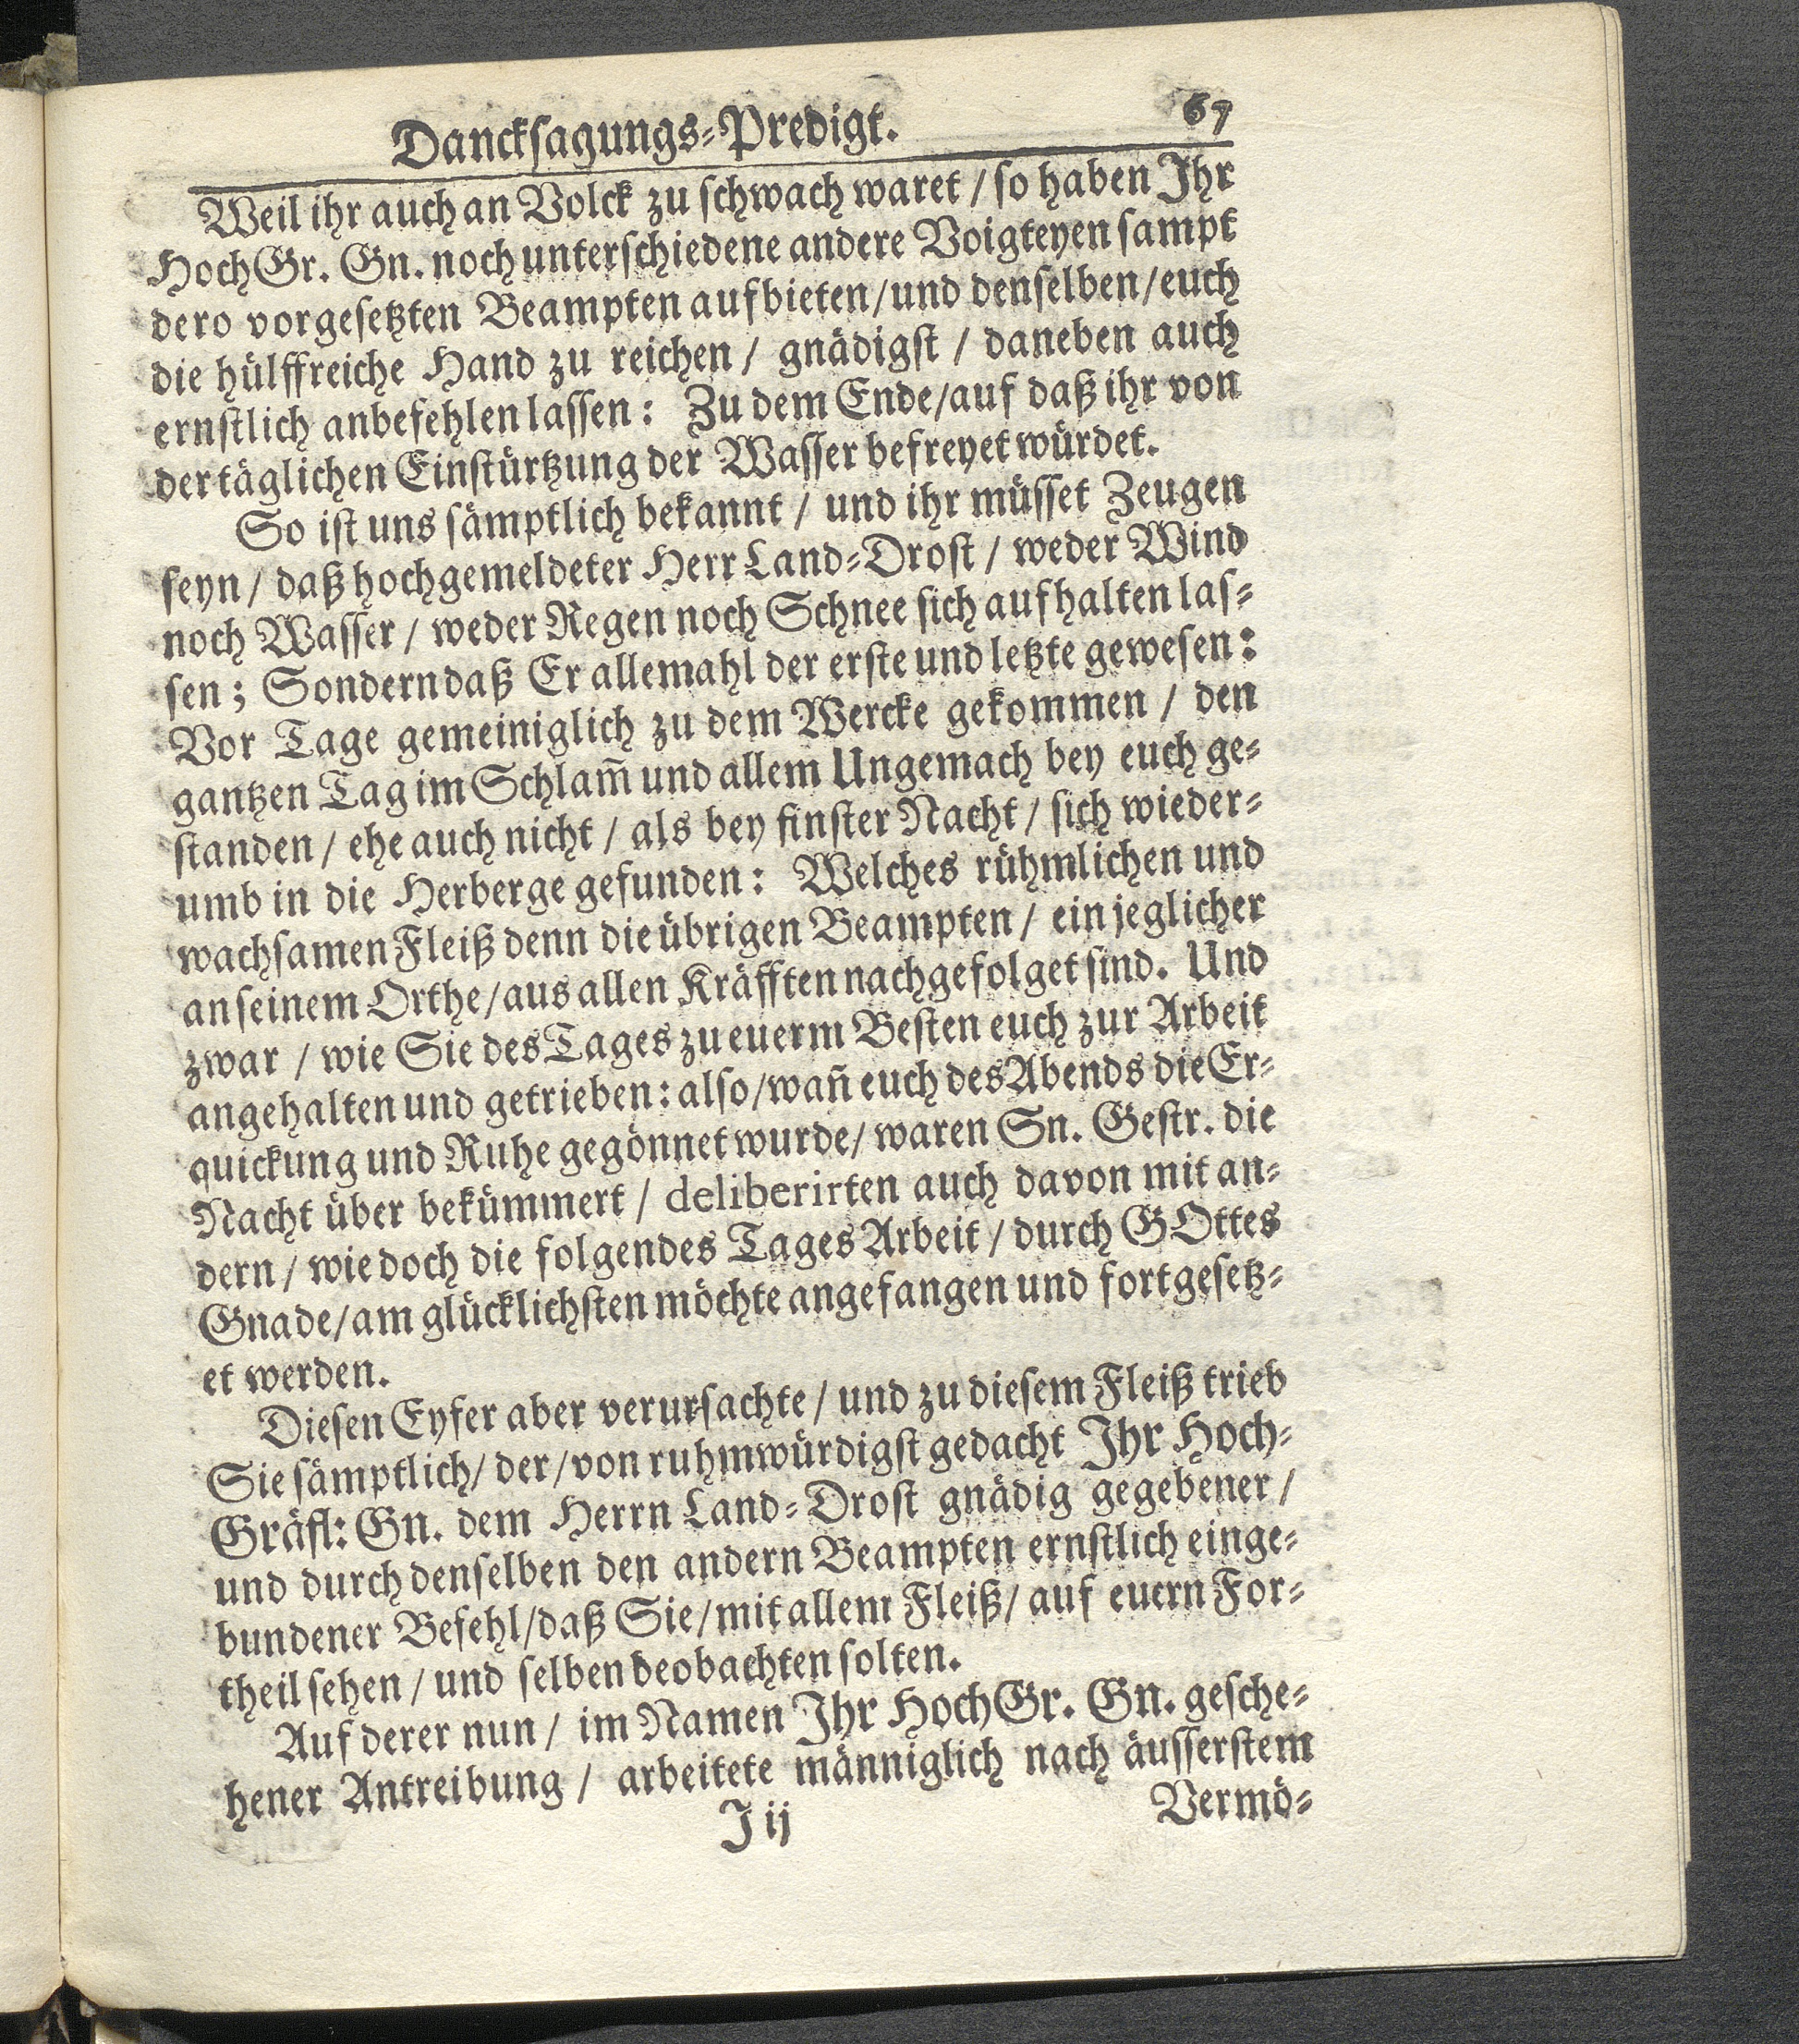 Dancksagungs-Predigt. 67
Weil ihr auch an Volck zu schwach waret / so haben Ihr
HochGr. Gn. noch unterschiedene andere Voigteyen sampt
dero vorgesetzten Beampten aufbieten/und denselben/euch
die hülffreiche Hand zu reichen / gnädigst / daneben auch
ernstlich anbefehlen lassen: Zu dem Ende/auf daß ihr von
der täglichen Einstürtzung der Wasser befreyet würdet.
So ist uns sämptlich bekannt / und ihr müsset Zeugen
seyn / daß hochgemeldeter Herr Land-Drost / weder Wind
noch Wasser / weder Regen noch Schnee sich aufhalten las-
sen; Sondern daß Er allemahl der erste und letzte gewesen:
Vor Tage gemeiniglich zu dem Wercke gekommen / den
gantzen Tag im Schlam̃ und allem Ungemach bey euch ge-
standen / ehe auch nicht / als bey finster Nacht / sich wieder-
umb in die Herberge gefunden: Welches rühmlichen und
wachsamen Fleiß denn die übrigen Beampten / ein jeglicher
an seinem Orthe/aus allen Kräfften nachgefolget sind. Und
zwar / wie Sie des Tages zu euerm Besten euch zur Arbeit
angehalten und getrieben: also/wañ euch des Abends die Er-
quickung und Ruhe gegönnet wurde/ waren Sn. Gestr. die
Nacht über bekümmert / deliberirten auch davon mit an-
dern / wie doch die folgendes Tages Arbeit / durch GOttes
Gnade/am glücklichsten möchte angefangen und fortgesetz-
et werden.
Diesen Eyfer aber verursachte / und zu diesem Fleiß trieb
Sie sämptlich/ der/von ruhmwürdigst gedacht Ihr Hoch-
Gräfl: Gn. dem Herrn Land-Drost gnädig gegebener /
und durch denselben den andern Beampten ernstlich einge-
bundener Befehl/daß Sie/mit allem Fleiß/ auf euern For-
theil sehen / und selben beobachten solten.
Auf derer nun / im Namen Ihr HochGr. Gn. gesche-
hener Antreibung / arbeitete männiglich nach äusserstem
J ij Vermö-